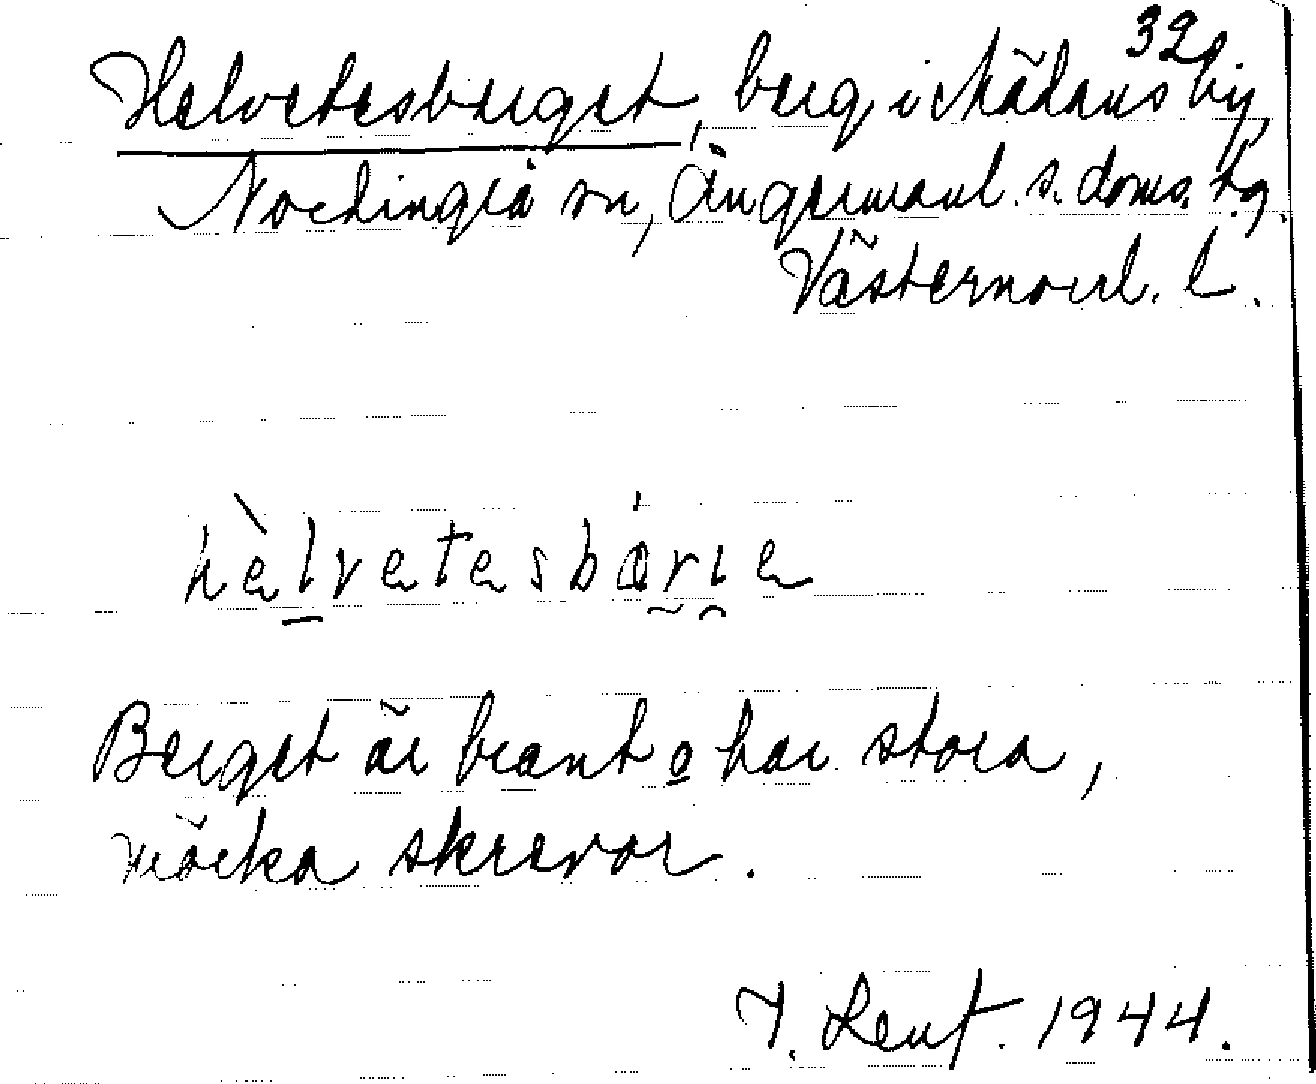 32
Helvetesberget, berg i Mädans by,
Nordingrå sn, Ångermanl. s. doms. tg.
Västernorrl. l.
hèlvetesbárıe
Berget är brant o har stora,
mörka skrevor.
1944.